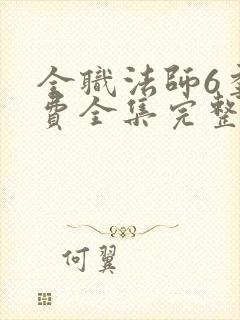 全職法師6
費全集完整
何翼